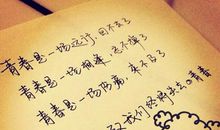 青春是一场远行，回不去了
青春是一场相逢，忘不掉了
青春是一场伤痛，来不及了
我们终将 的青春